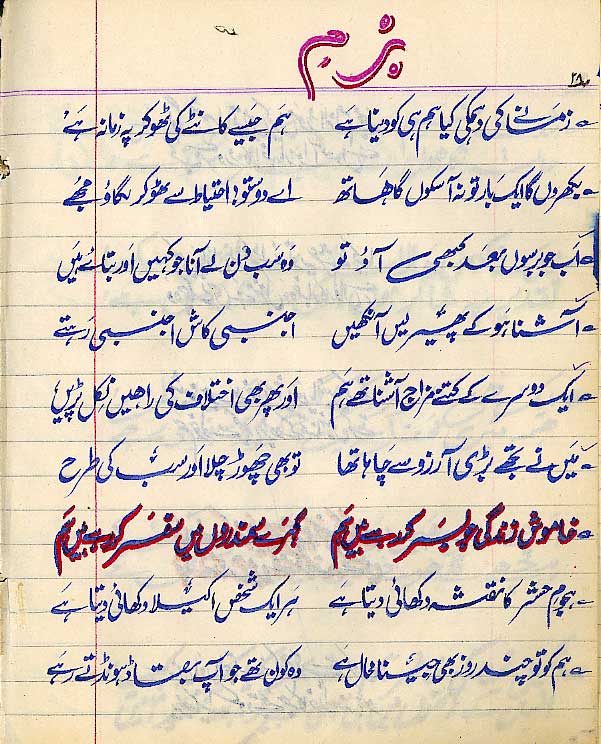 بزم
۲۸
زمانے کی دھمکی کیا ہم ہی کو دینا ہے ہم جیسے کانٹے کی ٹھوکر پہ زمانہ ہے
بکھروں گا ایک بار تو نہ آسکوں گا ہاتھ اے دوستو! احتیاط سے ٹھوکر لگاؤ مجھے
اب جو برسوں بعد کبھی آؤ تو وہ سب فن لے آنا جو کہیں اور بتائے ہیں
آشنا ہو کے پھیر لیں آنکھیں اجنبی کاش اجنبی رہتے
ایک دوسرے کے کتنے مزاج آشنا تھے ہم اور پھر بھی اختلاف کی راہیں نکل پڑیں
میں نے تجھے بڑی آرزو سے چاہا تھا تو بھی چھوڑ چلا اور سب کی طرح
خاموش زندگی جو بسر کر رہے ہیں ہم گہرے سمندروں میں سفر کر رہے ہیں ہم
ہجوم حشر کا نقشہ دکھائی دیتا ہے ہر ایک شخص اکیلا دکھائی دیتا ہے
ہم کو تو چند روز بھی جینا محال ہے وہ کون تھے جو آپ بقا ڈھونڈتے رہے